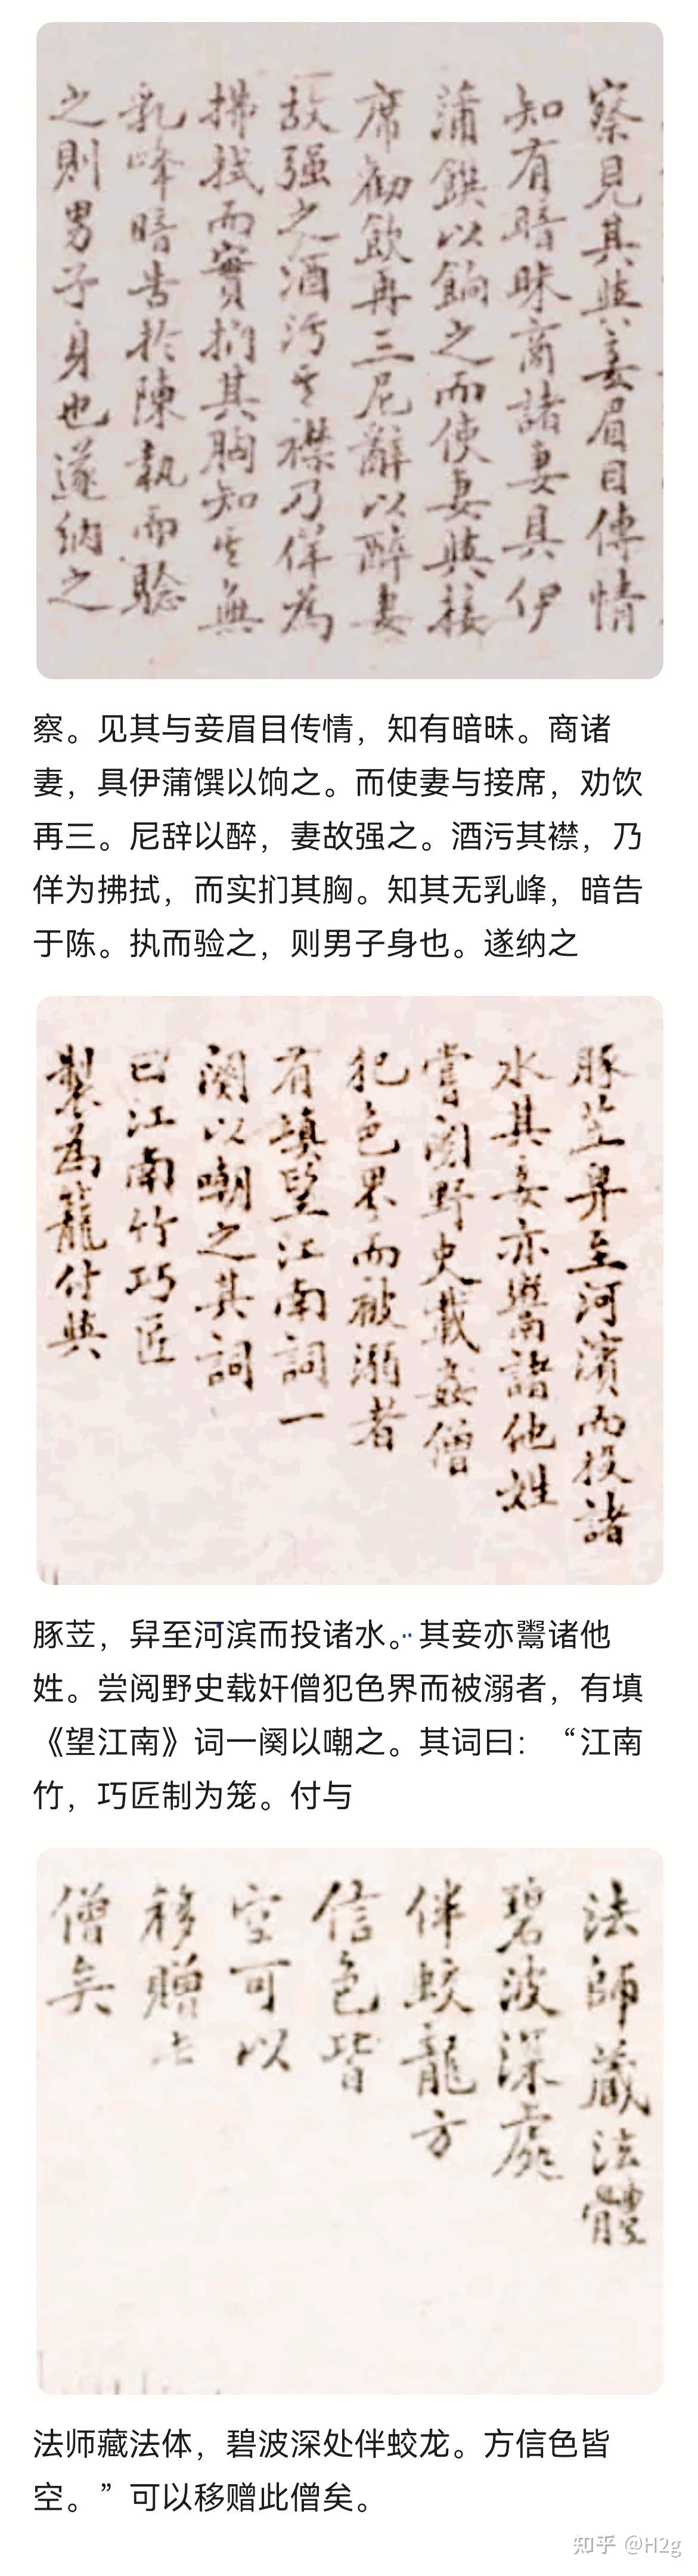 察見其與妾眉目傳情
知有暗昧商諸妻具伊
蒲饌以餉之而使妻與接
席勸飲再三尼辭以醉妻
故强之酒污其襟乃佯為
拂拭而實捫其胸知其無
乳峰暗告於陳執而驗
之則男子身也遂納之
察。见其与妾眉目传情，知有暗昧。商诸
妻，具伊蒲馔以饷之。而使妻与接席，劝饮
再三。尼辞以醉，妻故强之。酒污其襟，乃
佯为拂拭，而实扪其胸。知其无乳峰，暗告
于陈。执而验之，则男子身也。遂纳之
豚苙舁至河濱而投諸
水其妾亦鬻諸他姓
嘗閱野史載姦僧
犯色界而被溺者
有填望江南詞一
闋以嘲之其詞
曰江南竹巧匠
製為籠付與
豚苙，舁至河滨而投诸水。其妾亦鬻诸他
姓。尝阅野史载奸僧犯色界而被溺者，有填
《望江南》词一阕以嘲之。其词曰：“江南
竹，巧匠制为笼。付与
法師藏法體
碧波深處
伴蛟龍方
信色皆
空可以
移贈此
僧矣
法师藏法体，碧波深处伴蛟龙。方信色皆
空。”可以移赠此僧矣。
知乎 @H2g